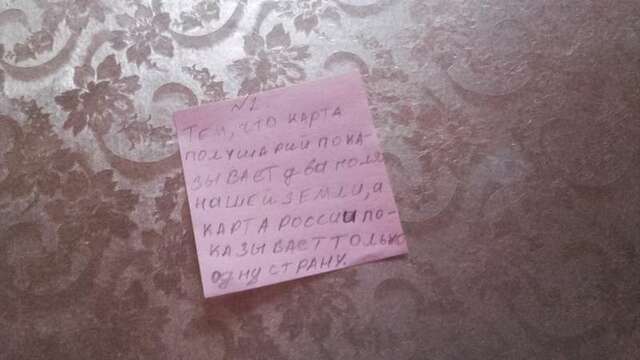 N1.
ТЕМ, ЧТО КАРТА
ПОЛУШАРИЙ ПОКА-
ЗЫВАЕТ два полю
НАШЕЙ ЗЕМЛИ, а
КАРТА РОССИИ ПО-
КАЗЫВАЕТ ТОЛЬКО
одну СТРАНУ.